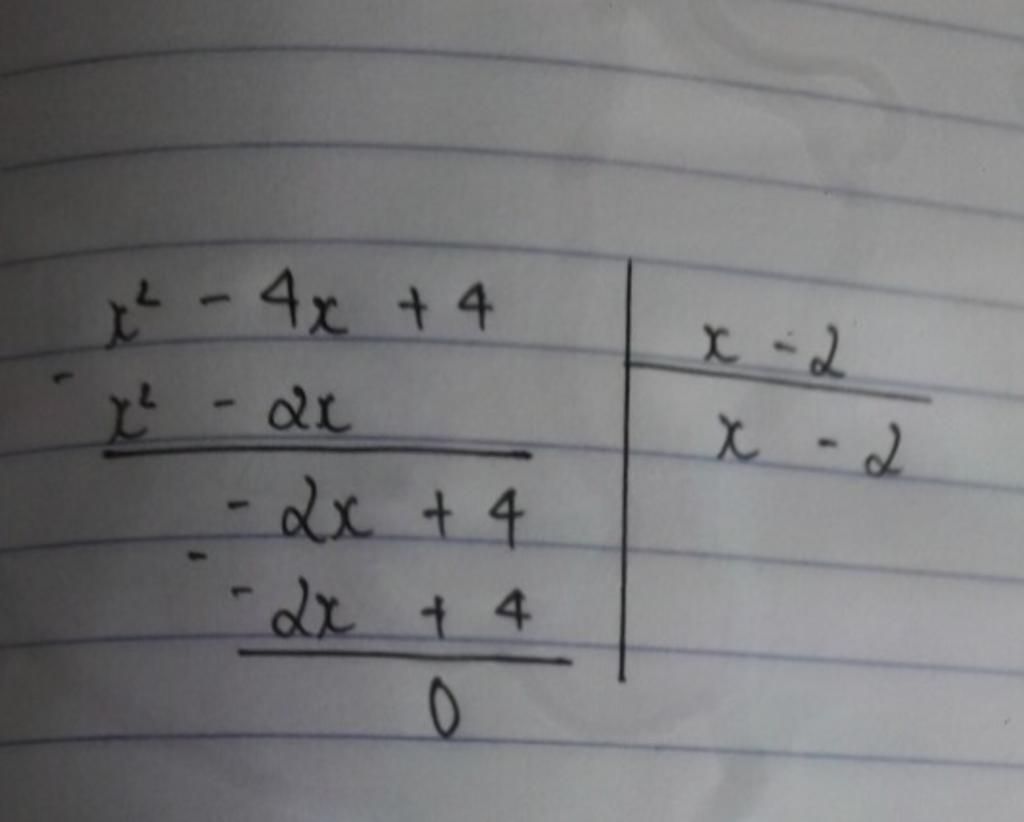 x² - 4x + 4
x - 2
-
x² - 2x
x - 2
- 2x + 4
-
- 2x + 4
0